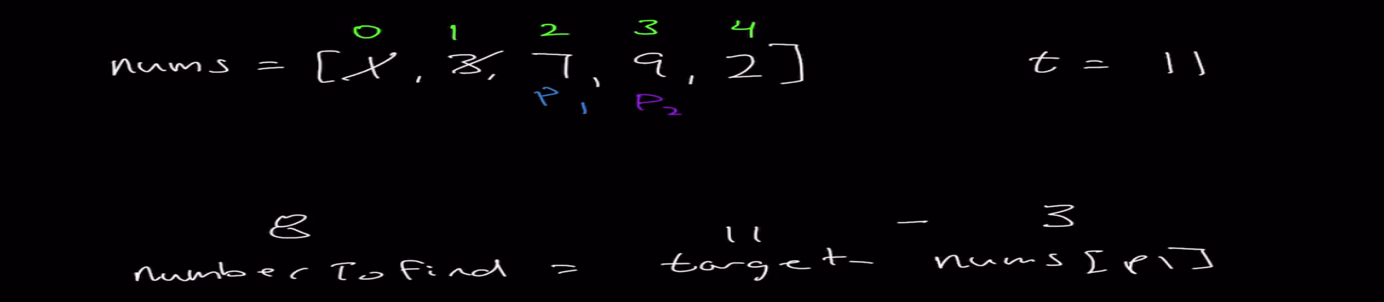 0 1 2 3 4
nums = [1, 3, 7, 9, 2] t = 11
P1 P2
8 11 - 3
numberToFind = target - nums[p1]